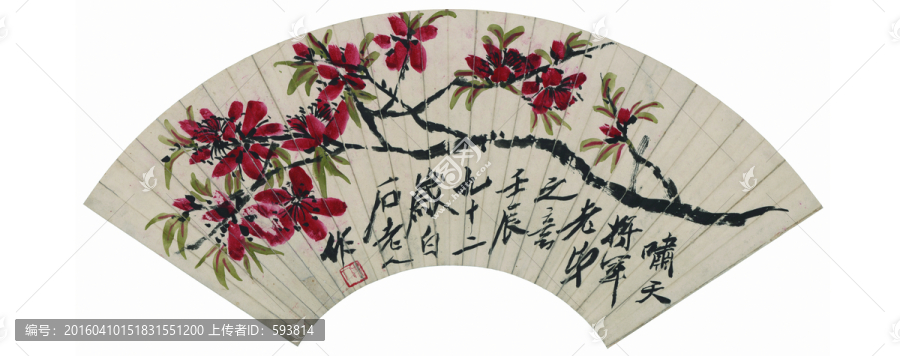 嘯天
將軍
老弟
之
壬辰
九十二
歲白
石老人
作
编号：20160410151831551200 上传者ID：593814